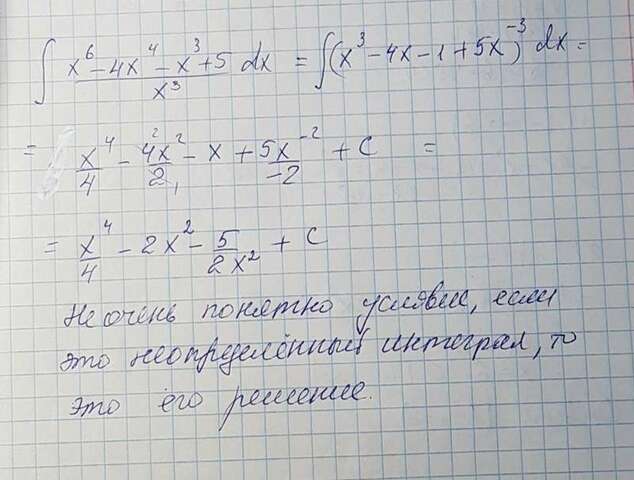 ∫ (x⁶ - 4x⁴ - x³ + 5)/x³ dx = ∫(x³ - 4x - 1 + 5x⁻³) dx =
= x⁴/4 - 4²x²/2₁ - x + 5x⁻²/-2 + C =
= x⁴/4 - 2x² - 5/2x² + C
Не очень понятно условие, если
это неопределённый интеграл, то
это его решение.